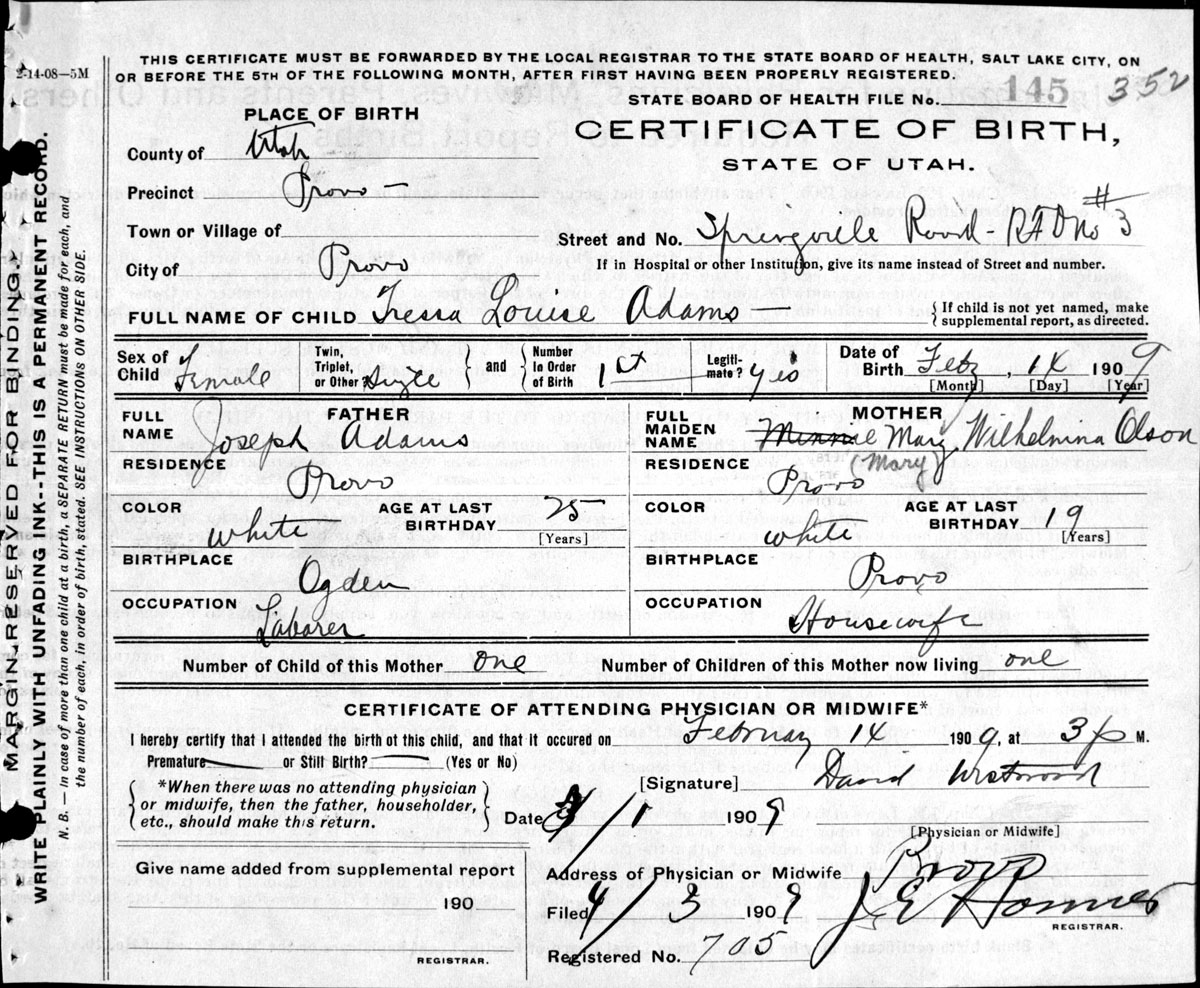 THIS CERTIFICATE MUST BE FORWARDED BY THE LOCAL REGISTRAR TO THE STATE BOARD OF HEALTH, SALT LAKE CITY, ON
2-14-08—5M
OR BEFORE THE 5TH OF THE FOLLOWING MONTH, AFTER FIRST HAVING BEEN PROPERLY REGISTERED.
STATE BOARD OF HEALTH FILE No. 145 352
PLACE OF BIRTH
CERTIFICATE OF BIRTH,
STATE OF UTAH.
County of Utah
Precinct Provo
Town or Village of
Street and No. Springville Road - RFD No #3
City of Provo
If in Hospital or other Institution, give its name instead of Street and number.
FULL NAME OF CHILD Tressa Louise Adams
{ If child is not yet named, make supplemental report, as directed.
Sex of Child Female
Twin, Triplet, or Other? Single } and { Number In Order of Birth 1st
Legitimate? Yes
Date of Birth Feb 14 1909
[Month] [Day] [Year]
FATHER
FULL NAME Joseph Adams
RESIDENCE Provo
COLOR White
AGE AT LAST BIRTHDAY 25
[Years]
BIRTHPLACE Ogden
OCCUPATION Laborer
MOTHER
FULL MAIDEN NAME Mary Wilhelmina Olson
(Mary)
RESIDENCE Provo
COLOR White
AGE AT LAST BIRTHDAY 19
[Years]
BIRTHPLACE Provo
OCCUPATION Housewife
Number of Child of this Mother one
Number of Children of this Mother now living one
CERTIFICATE OF ATTENDING PHYSICIAN OR MIDWIFE*
I hereby certify that I attended the birth of this child, and that it occured on February 14 1909, at 3 p M.
Premature or Still Birth? (Yes or No)
[Signature] David Westwood
{ *When there was no attending physician or midwife, then the father, householder, etc., should make this return. }
Date 1 1909
[Physician or Midwife]
Give name added from supplemental report
190
REGISTRAR.
Address of Physician or Midwife Provo
Filed 4/3 1909 J E
REGISTRAR.
Registered No. 705
MARGIN RESERVED FOR BINDING.
WRITE PLAINLY WITH UNFADING INK---THIS IS A PERMANENT RECORD.
N. B. — In case of more than one child at a birth, a SEPARATE RETURN must be made for each, and
the number of each, in order of birth, stated. SEE INSTRUCTIONS ON OTHER SIDE.